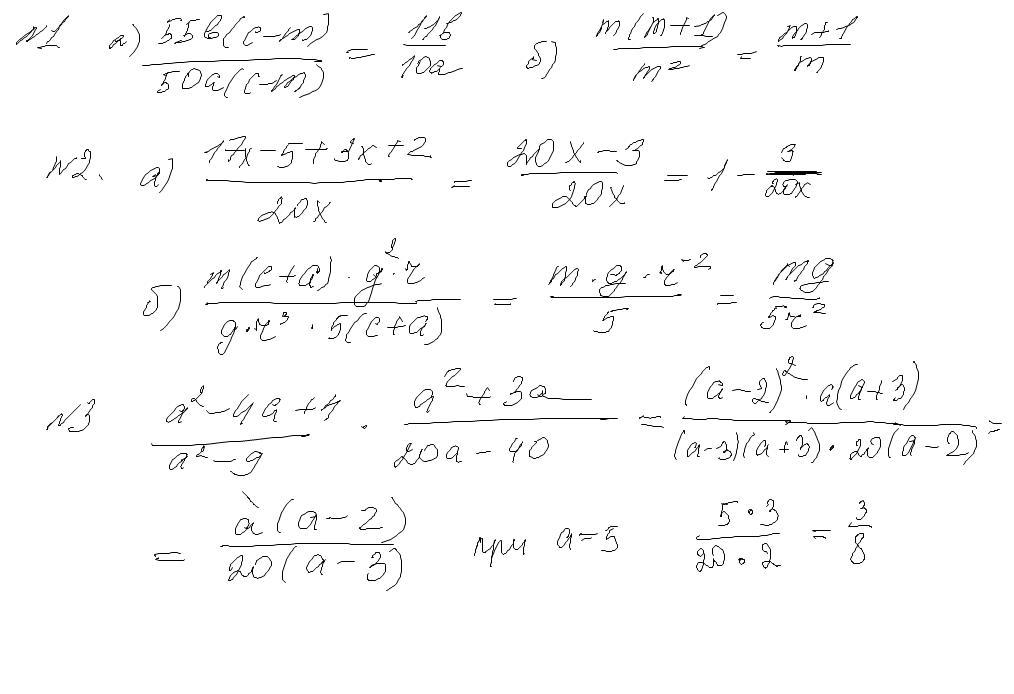 №1 а) 55в(с-m)/50а(с-m) = 11в/10а б) m(m+1)/m² = m+1/m
№2. а) 17x-5+3x+2/20x = 20x-3/20x = 1 - 3/20x
б) m(c+a)·g²·r/g·r³·5(c+a) = m·g·r⁻²/5 = mg/5r²
№3 a²-4a+4/a²-9 · a²+3a/20a-40 = (a-2)²·a(a+3)/(a-3)(a+3)·20(a-2) =
= a(a-2)/20(a-3) при a=5 5·3/20·2 = 3/8